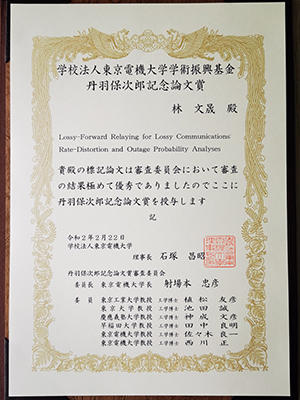 学校法人東京電機大学学術振興基金
丹羽保次郎記念論文賞
林 文晟 殿
Lossy-Forward Relaying for Lossy Communications:
Rate-Distortion and Outage Probability Analyses
貴殿の標記論文は審査委員会において審査
の結果極めて優秀でありましたのでここに
丹羽保次郎記念論文賞を授与します
記
令和2年2月22日
学校法人東京電機大学
理事長 石塚 昌昭
丹羽保次郎記念論文賞審査委員会
委員長 東京電機大学長 射場本 忠彦
委員 東京工業大学教授 工学博士 植松 友彦
東京大学教授 工学博士 池田 誠
慶應義塾大学教授 工学博士 神成 文彦
早稲田大学教授 工学博士 田中 良明
東京電機大学教授 工学博士 佐々木 良一
東京電機大学教授 工学博士 西川 正